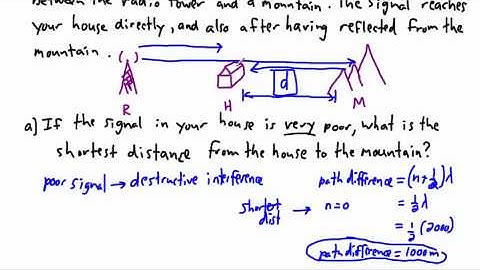 between the radio tower and a mountain. The signal reaches
your house directly, and also after having reflected from the
mountain.
d
R H M
a] If the signal in your house is very poor, what is the
shortest distance from the house to the mountain?
poor signal → destructive interference
path difference = (n+½)λ
shortest dist → n=0
= ½λ
= ½(2000)
path difference = 1000m